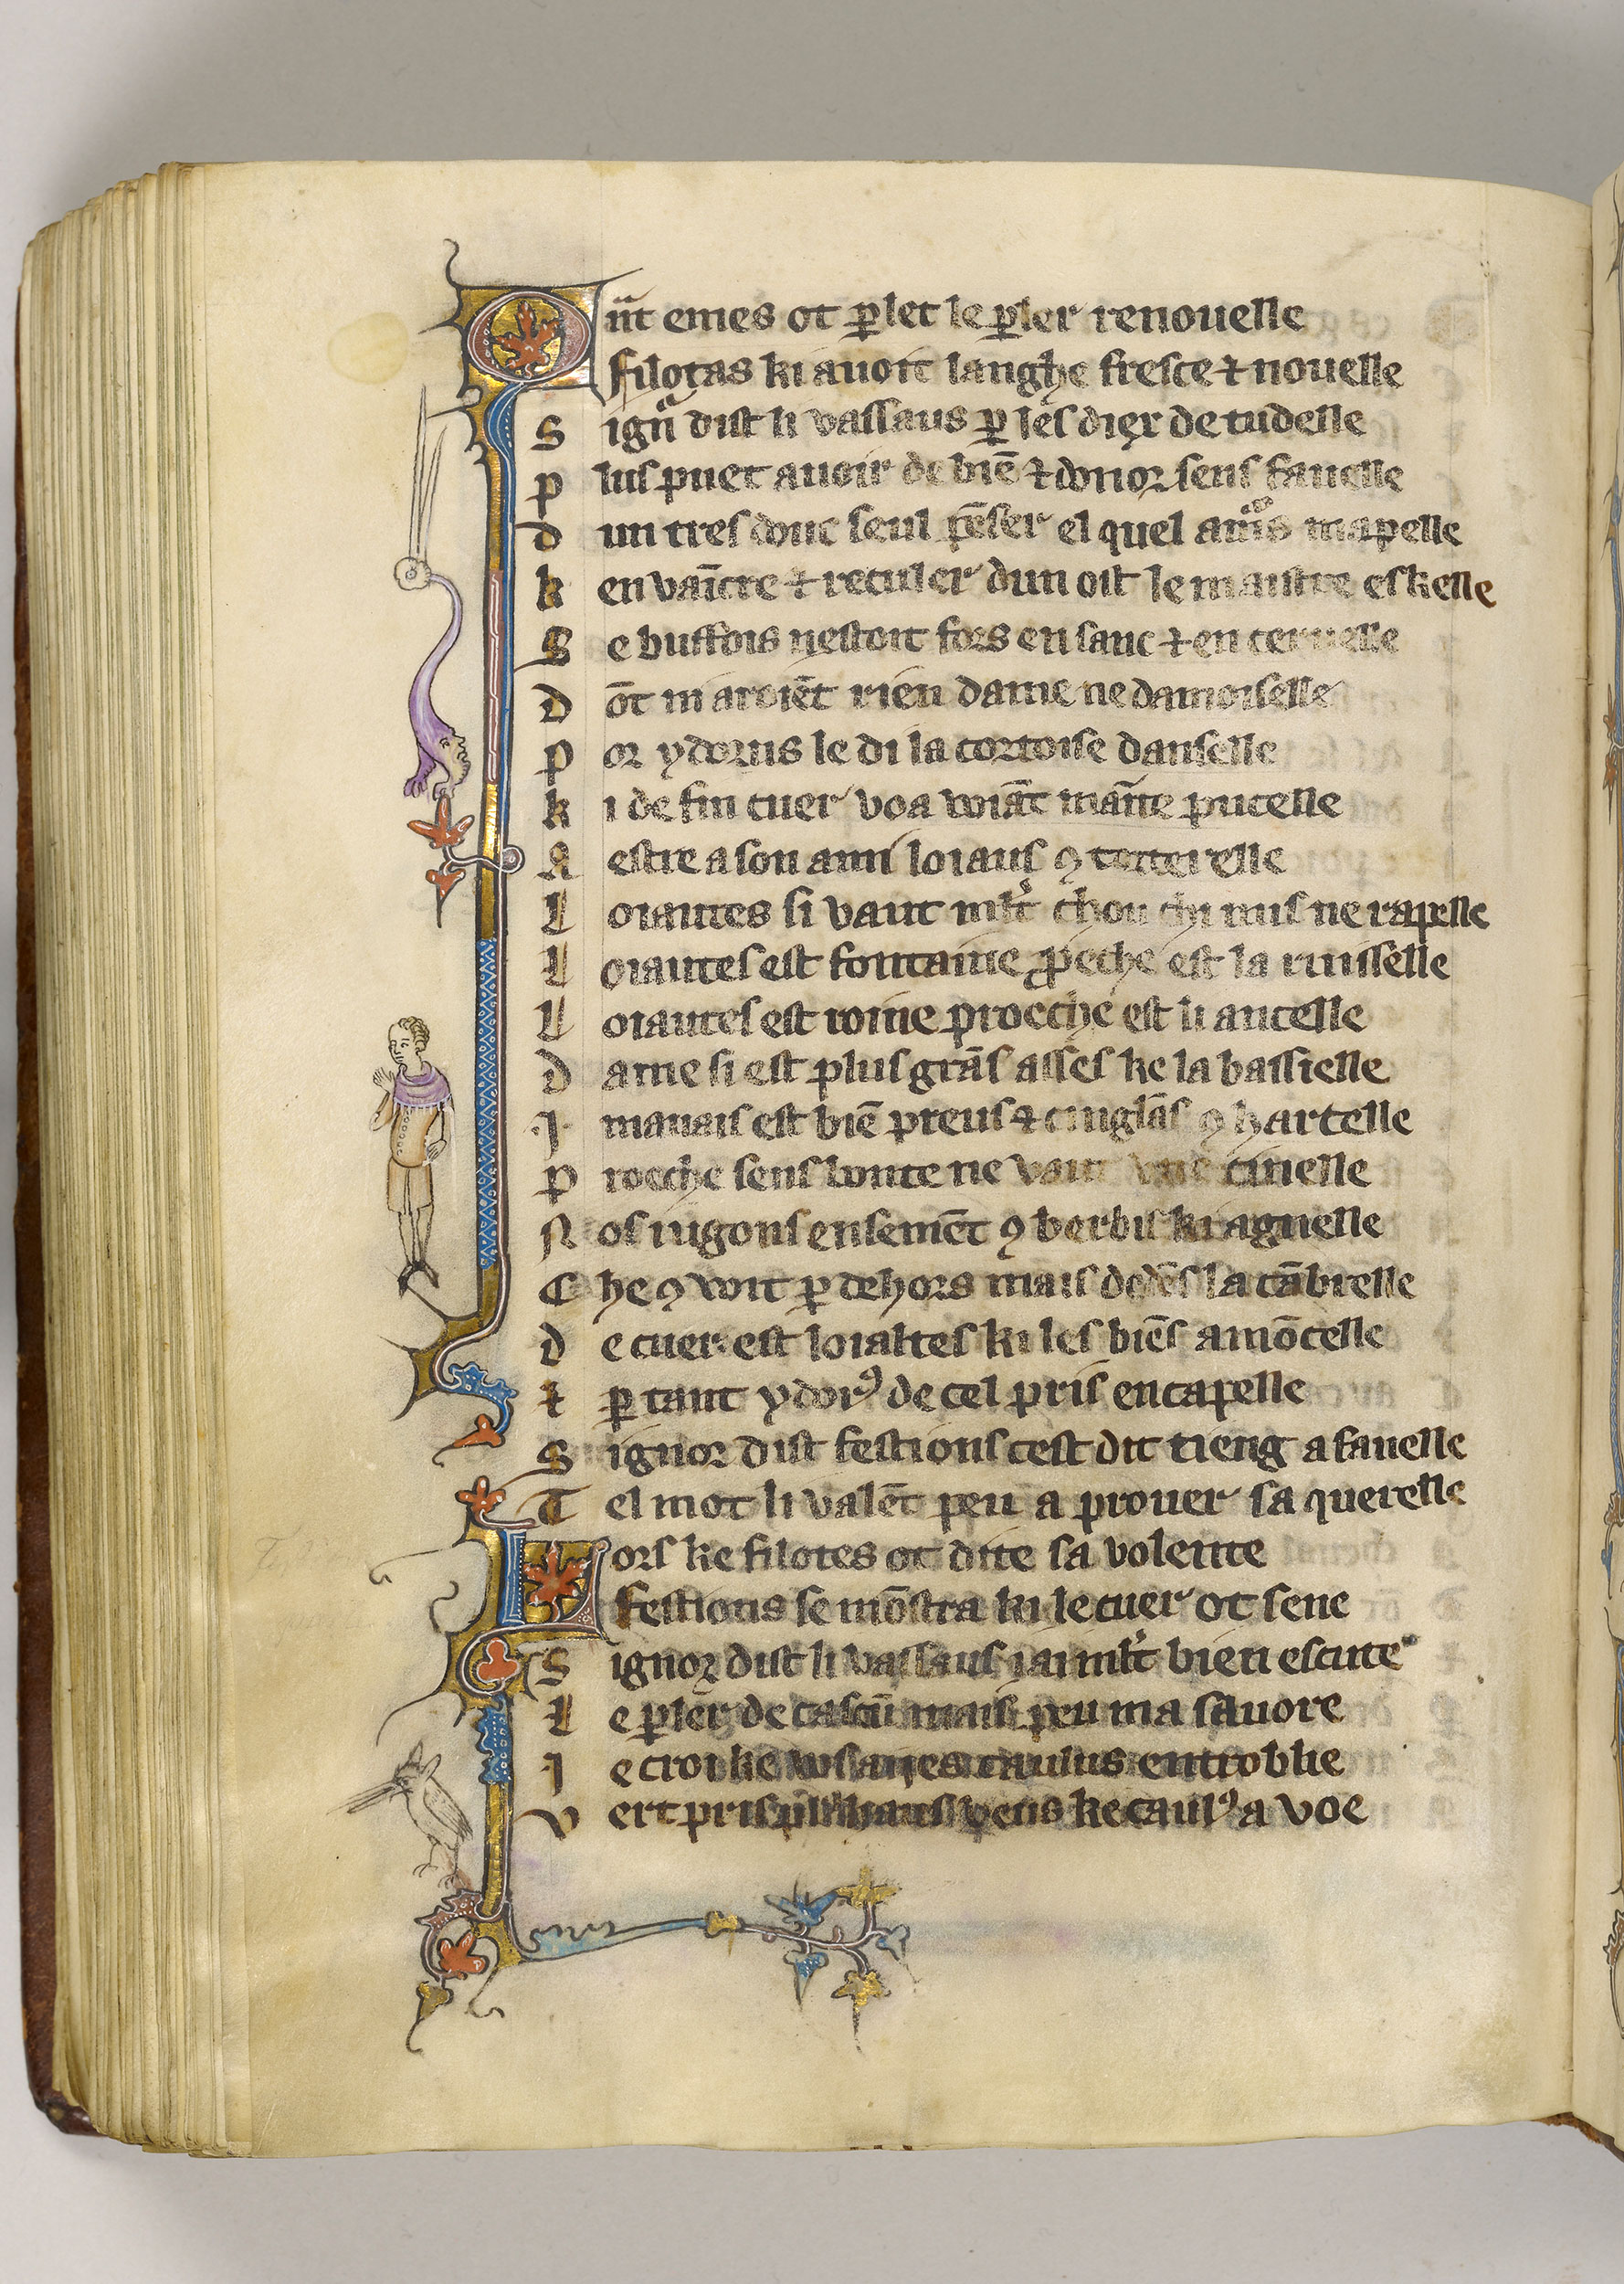 Qͣnt emes ot ꝑlet le ꝑler renouelle
filotas ki auoit langhe fresce ⁊ nouelle
S ignͬ dist li vassaus ꝑ les diex de tudelle
P lus puet auoir de biē ⁊ donor sens fauelle
D un tres douc seul pēser el quel amͦͬs mapelle
K en vaīcre ⁊ reculer dun ost le maistre eskelle
S e buffois nestoit fors en sanc ⁊ en ceruelle
D ōt mi aroiēt rien dame ne damoiselle
P or ydorus le di la cortoise danselle
K i de fin cuer voa maīte pucelle
A estre a son ami loiaus ꝯ
L oiautes si vaut ml̃t chou nus ne rapelle
L oiautes est fontaine ꝓeche est la ruisselle
L oiautes est roine proeche est li ancelle
D ame si est plus grās asses ke la baissielle
.I. mauais est biē preus ⁊ cinglās ꝯ hartelle
P roeche sens bonte ne vaut vne cinelle
N os iugons ensemēt ꝯ berbis ki agnelle
C he ꝯ voit ꝑ dehors mais dedēs la cābrelle
D e cuer est loialtes ki les biēs amōcelle
⁊ ꝑ tant ydorꝰ de cel pris encapelle
S ignor dist festions cest dit tieng a fauelle
T el mot li valēt peu a prouer sa querelle
Lors ke filotes ot dite sa volente
festions se mōstra ki le cuer ot sene
S ignor dist li vassaus iai ml̃t bien escute
L e ꝑler de cascū mais peu ma sauore
I e croi ke caulus entroblie
V ert pris ke caulꝰ a voe